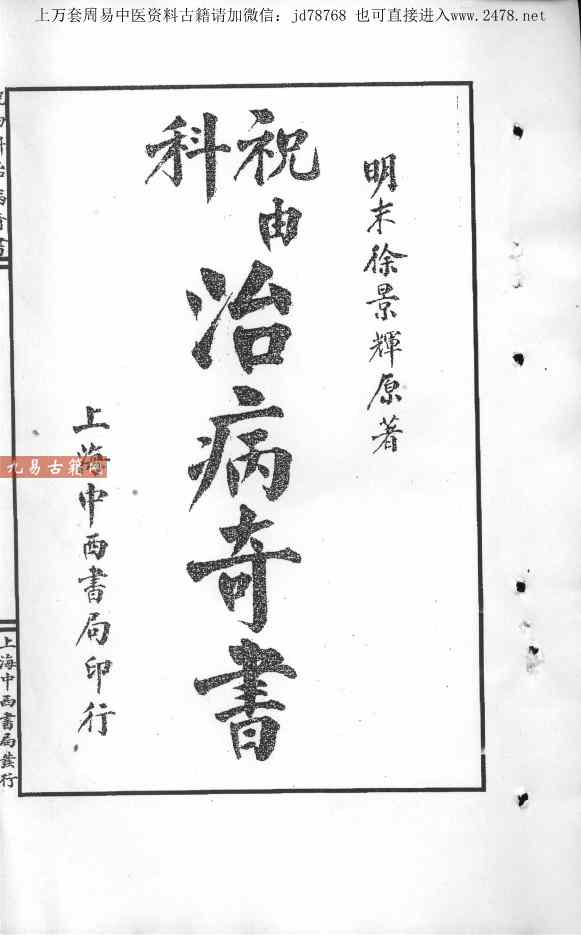 上万套周易中医资料古籍请加微信：jd78768 也可直接进入www.2478.net
明末徐景輝原著
祝由科
治病奇書
上海中西書局印行
九易古籍网
科治病奇書
上海中西書局發行